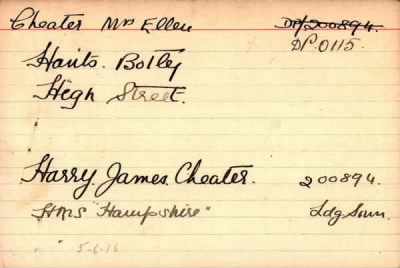 Cheater Mrs Ellen D/200894.
DP.0115.
Hants. Botley
High Street.
Harry. James. Cheater. 200894.
HMS "Hampshire" Ldg Smn.
5-6-16